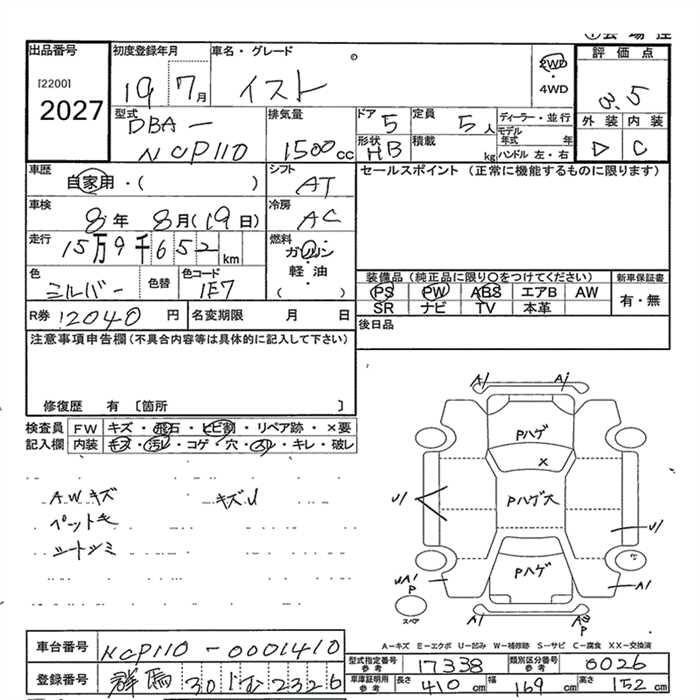 出品番号 初度登録年月 車名・グレード 評価点
[2200] 19 7月 イスト 2WD・4WD 3.5
2027 外装 内装
型式 排気量 ドア 定員 ディーラー・並行
DBA- 5 5人 モデル年式 年
NCP110 1500cc 形状 HB 積載 kg ハンドル 左・右 C
車歴 シフト セールスポイント (正常に機能するものに限ります)
自家用・( ) AT
車検 冷房
8年 8月(19日) AC
走行 燃料
15万9千652km ガソリン・軽油・( )
色 色替 色コード 装備品(純正品に限り〇をつけてください) 新車保証書
シルバー 1E7 PS PW ABS エアB AW 有・無
SR ナビ TV 本革
R券 12040円 名変期限 月 日 後日品
注意事項申告欄(不具合内容等は具体的に記入して下さい)
修復歴 有 〔箇所 〕
検査員 FW キズ・飛石・ヒビ割・リペア跡・×要
記入欄 内装 キズ・汚レ・コゲ・穴・スレ・キレ・破レ
AWキズ キズU
ペットキ
シートシミ
A1 A1
Pハゲ
X
U1 Pハゲ大 U1
Pハゲ
UA1 P A1
スペア A1 P
A=キズ E=エクボ U=凹み W=補修跡 S=サビ C=腐食 XX=交換済
車台番号 NCP110-0001410
型式指定番号 参考 17338 類別区分番号 参考 0026
登録番号 群馬 301 む 2326
車庫証明用 参考 長さ 410cm 幅 169cm 高さ 152cm